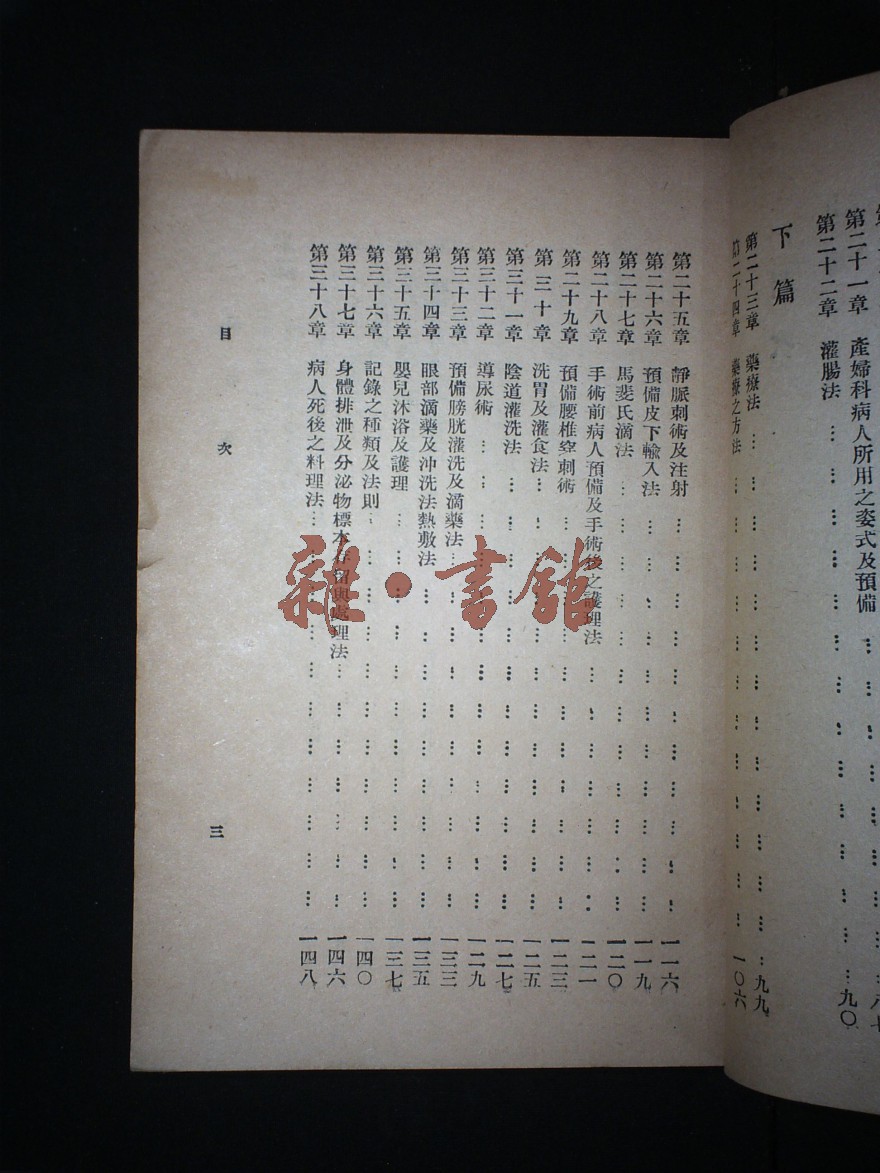 第二十一章 產婦科病人所用之姿式及預備
第二十二章 灌腸法 九〇
下篇
第二十三章 藥療法 九九
第二十四章 藥療之方法 一〇六
第二十五章 靜脈刺術及注射 一一六
第二十六章 預備皮下輸入法 一一九
第二十七章 馬斐氏滴法 一二〇
第二十八章 手術前病人預備及手術後之護理法 一二一
第二十九章 預備腰椎穿刺術 一二三
第三十章 洗胃及灌食法 一二五
第三十一章 陰道灌洗法 一二七
第三十二章 導尿術 一二九
第三十三章 預備膀胱灌洗及滴藥法 一三三
第三十四章 眼部滴藥及沖洗法熱敷法 一三五
第三十五章 嬰兒沐浴及護理 一三七
第三十六章 記錄之種類及法則 一四〇
第三十七章 身體排泄及分泌物標本存留與處理法 一四六
第三十八章 病人死後之料理法 一四八
目次 三
雜·書館